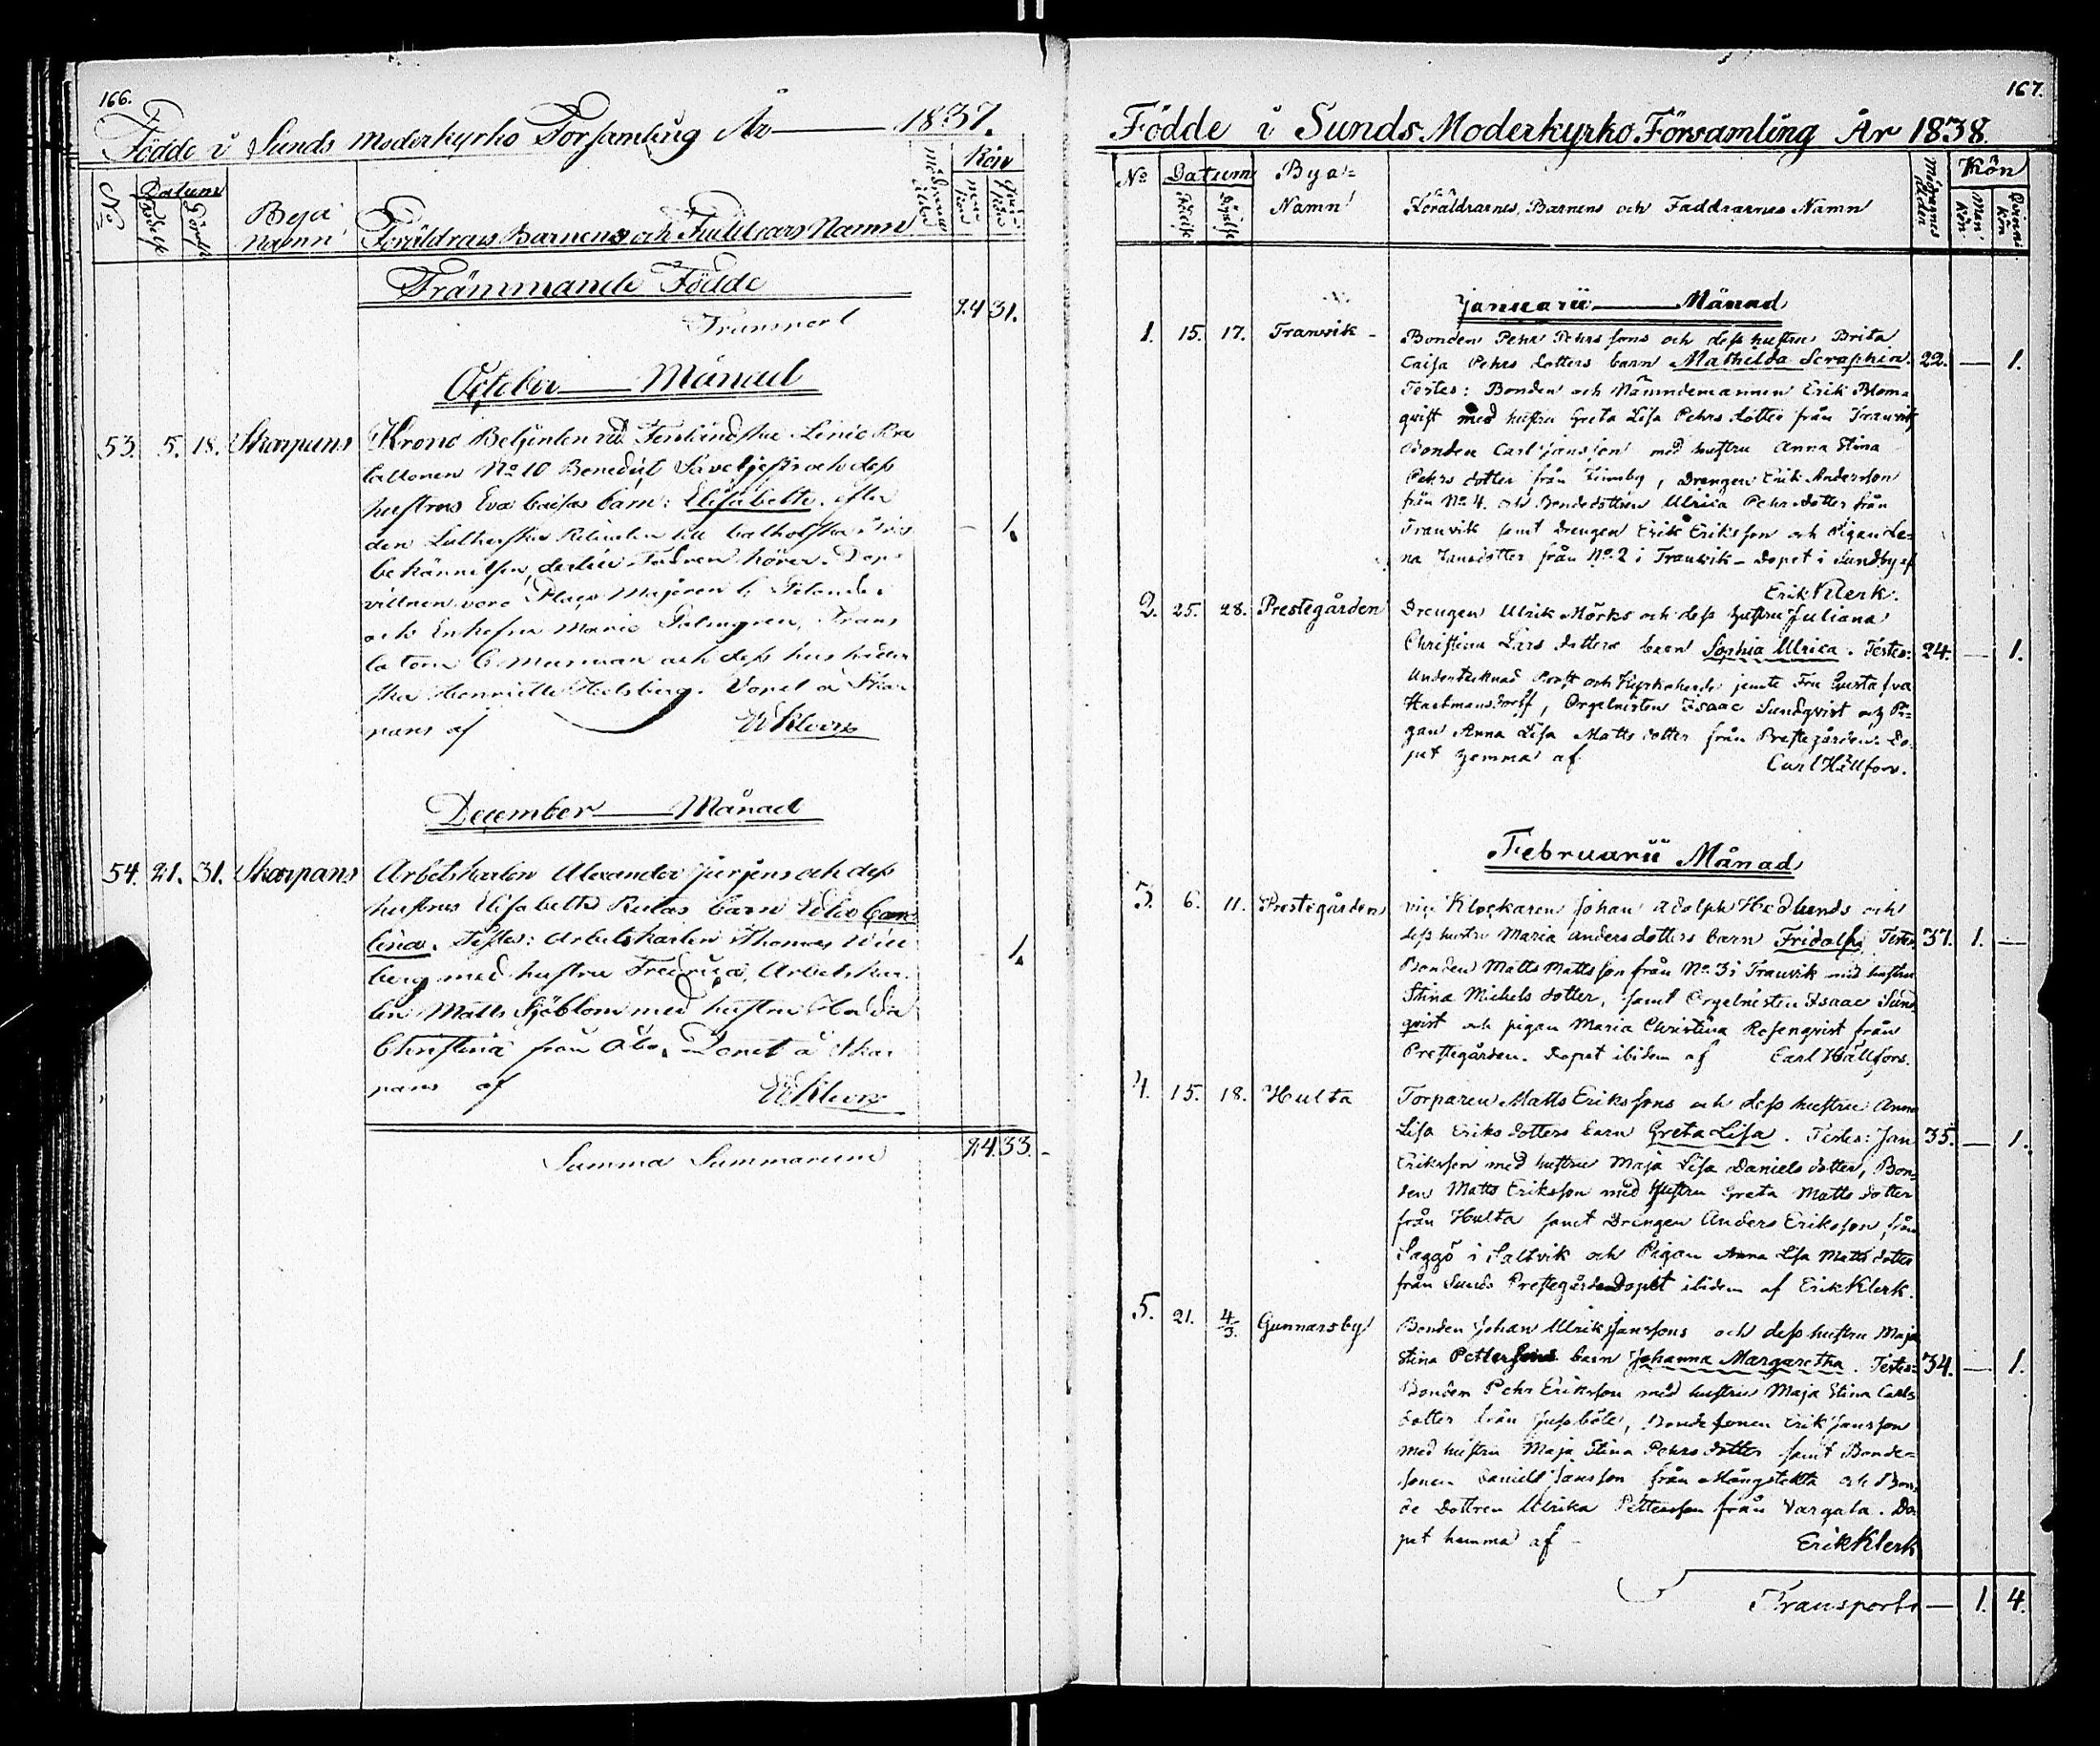 166.
Födde i Sunds Moderkyrko Församling År — 1837.
No Datum Födelse Döpelse Bya Namn Föräldrars Barnens och Faddrars Namn Kön
Främmande Födde
Transport 24 31.
October — Månad
53. 5. 18. Skarpans Krono Betjenten vid Finländska Linie Ba
taillonen No 10 Benedict och dess
hustrus Eva Caisas barn: Elisabeth. efter
den Lutherska till Catholska
bekännelsen, Fadren hörer. Dop- 1.
vittnen voro Plats Majoren
och Enkefru Maria Palmgren, Trans
latorn C. Murman och dess hushåller
ska Henriette Helsberg. Döpet å Skar
pans af EKlerk
December — Månad
54. 21. 31. Skarpans Arbetskarlen Alexander Jürjens och dess
hustrus Elisabeths barn Edla Caro
lina. Testes: Arbetskarlen Thomas Wiik
berg med hustru Fredrica, Arbetskar- 1.
len Matts Sjöblom med hustru Hedda
Christina från Åbo. Döpet å Skar
pans af EKlerk
Summa Summarum 24. 33.
167.
Födde i Sunds Moderkyrko Församling År 1838.
No Datum Födelse Döpelse Bya= Namn Föräldrarnes, Barnens och Faddrarnes Namn Modrens Ålder Kön Man kön Qvinn kön
Januarii — Månad
1. 15. 17. Tranvik - Bonden Pehr Pehrssons och dess hustru Brita
Caisa Pehrs dotters barn Mathilda Seraphia. 22. — 1.
Testes: Bonden och Nämndemannen Erik Blom-
qvist med hustru Greta Lisa Pehrs dotter från Tranvik
Bonden Carl Jansson med hustru Anna Stina
Pehrs dotter från Finnby, Drengen Erik Andersson
från No 4. och Bondedottren Ulrica Pehrsdotter från
Tranvik samt Drengen Erik Eriksson och Pigan Le-
na Jansdotter från No 2 i Tranvik - Döpet i Sundby af
Erik Klerk.
2. 25. 28. Prestegården Drengen Ulrik Mörks och dess hustru Juliana
Christina Lars dotters barn Sophia Ulrica. Testes: 24. — 1.
Undertecknad Prost och Kyrkoherde jemte Fru Gustafva
Hartmansdorff, Orgelnisten Isaac Sundqvist och Pi=
gan Anna Lisa Matts dotter från Prestegården. Dö
pet hemma af Carl Hällfors.
Februarii Månad
3. 6. 11. Prestegården vice Klockaren Johan Adolph Hedlunds och
dess hustru Maria Anders dotters barn Fridolf. Testes 37. 1. —
Bonden Matts Mattsson från No 3 i Tranvik med hustru
Stina Michels dotter, samt Orgelnisten Isaac Sund
qvist och pigan Maria Christina Rosenqvist från
Prestegården. Döpet ibidem af Carl Hällfors.
4. 15. 18. Hulta Torparen Matts Erikssons och dess hustru Anna
Lisa Eriks dotters barn Greta Lisa. Testes: Jan 35. — 1.
Eriksson med hustru Maja Lisa Daniels dotter, Bon-
den Matts Eriksson med hustru Greta Matts dotter
från Hulta samt Drengen Anders Eriksson från
Saggö i Saltvik och Pigan Anna Lisa Matts dotter
från Sunds Prestegård Döpet ibidem af Erik Klerk.
5. 21. 4/3. Gunnarsby Bonden Johan Ulrik Janssons och dess hustru Maja
Stina Petterssons barn Johanna Margaretha. Testes: 34. — 1.
Bonden Pehr Eriksson med hustru Maja Stina Carls
dotter från Jussböle, Bondesonen Erik Jansson
med hustru Maja Stina Pehrs dotter samt Bonde-
sonen Daniel Jansson från Mångstekta och Bon-
de dottren Ulrika Pettersson från Vargata. Dö-
pet hemma af - Erik Klerk
Transport — 1. 4.